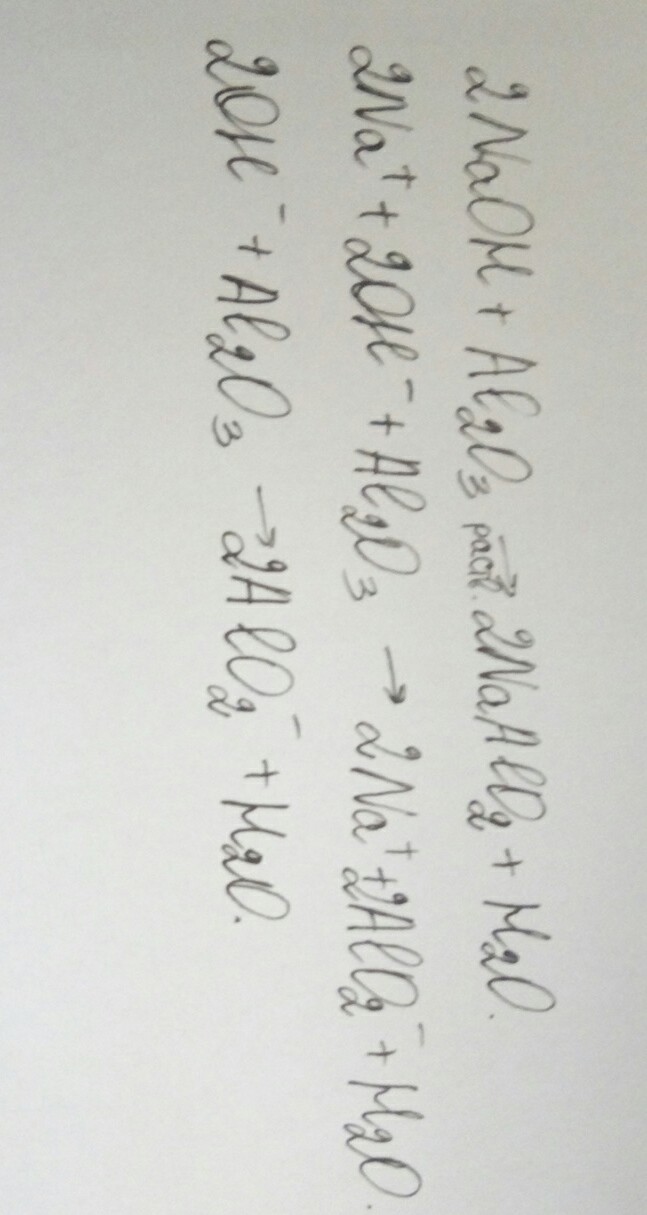 2NaOH + Al₂O₃ →раств. 2NaAlO₂ + H₂O.
2Na⁺ + 2OH⁻ + Al₂O₃ → 2Na⁺ + 2AlO₂⁻ + H₂O.
2OH⁻ + Al₂O₃ → 2AlO₂⁻ + H₂O.